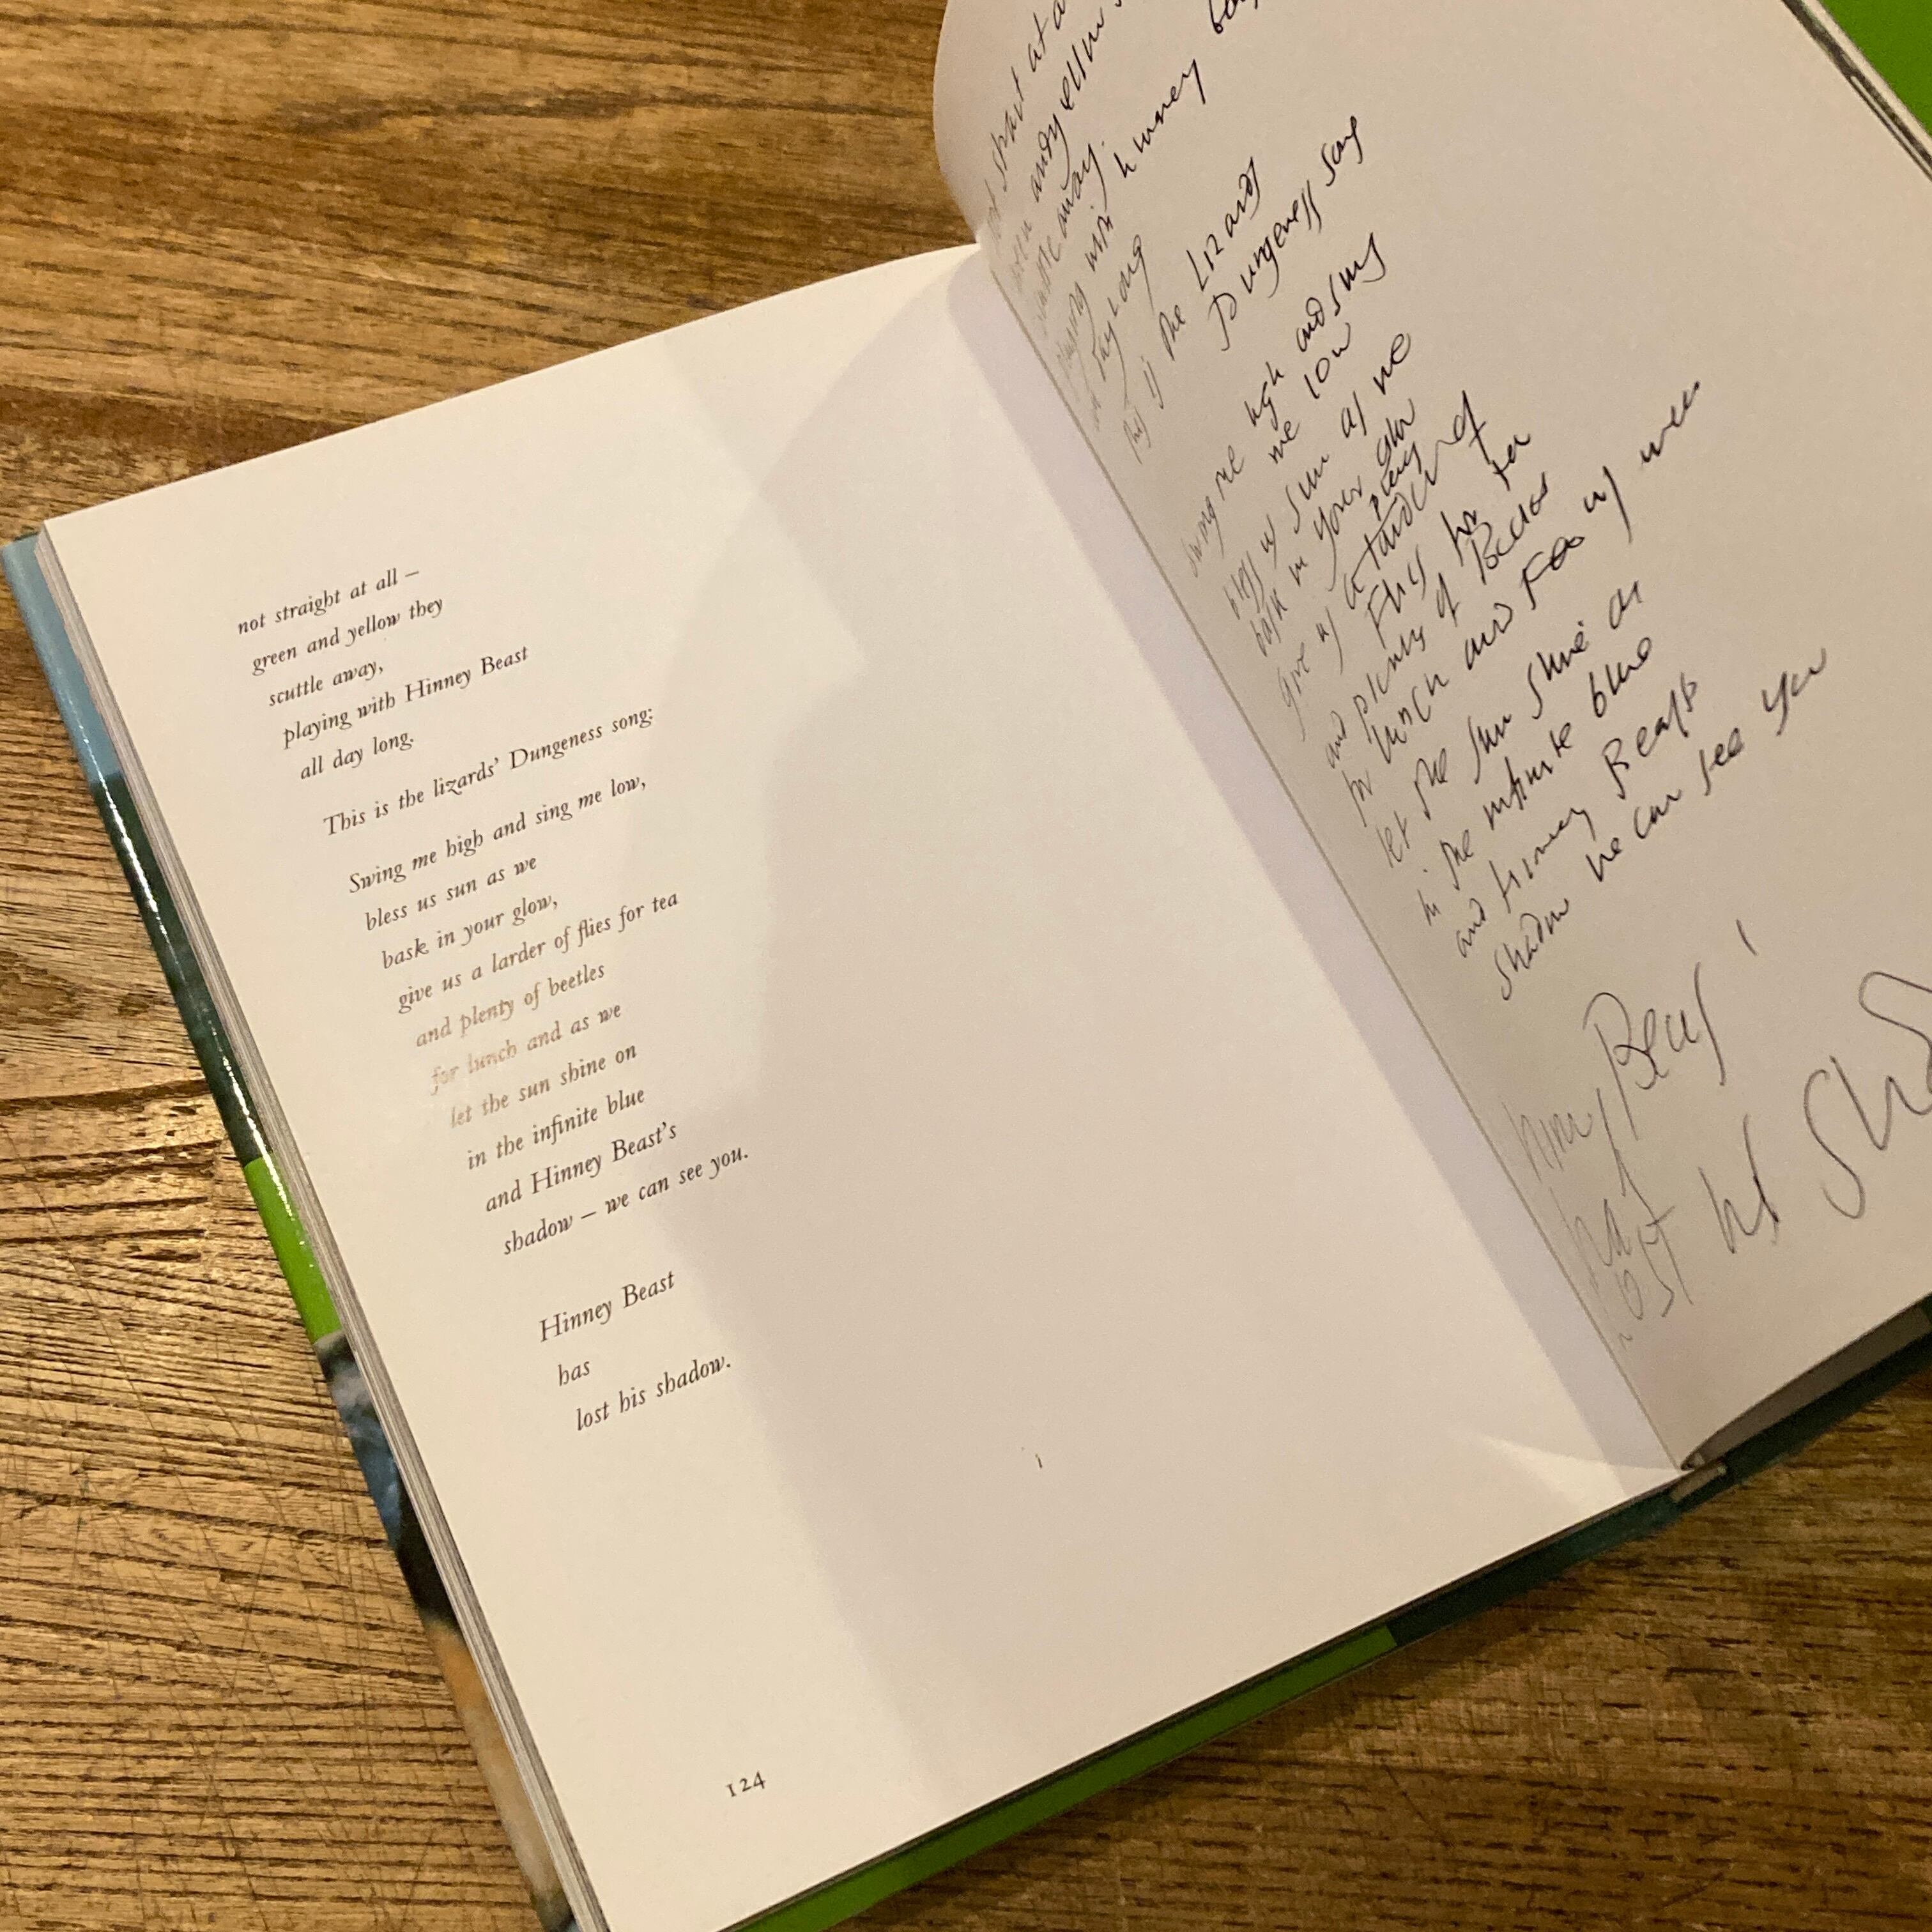 not straight at all –
green and yellow they
scuttle away,
playing with Hinney Beast
all day long.
This is the lizards' Dungeness song:
Swing me high and sing me low,
bless us sun as we
bask in your glow,
give us a larder of flies for tea
and plenty of beetles
for lunch and as we
let the sun shine on
in the infinite blue
and Hinney Beast's
shadow – we can see you.
Hinney Beast
has
lost his shadow.
124
at a
and yellow
away.
with hinney
day Long
the Lizards
Dungeness song
Swing me high and sing
me low
bless us sun as we
bask in your glow
give us a larder of
Flys for tea
and plenty of
for lunch and
let the sun shine on
in the infinite blue
and Hinney Beasts
shadow we can see you
Beast
has
lost his